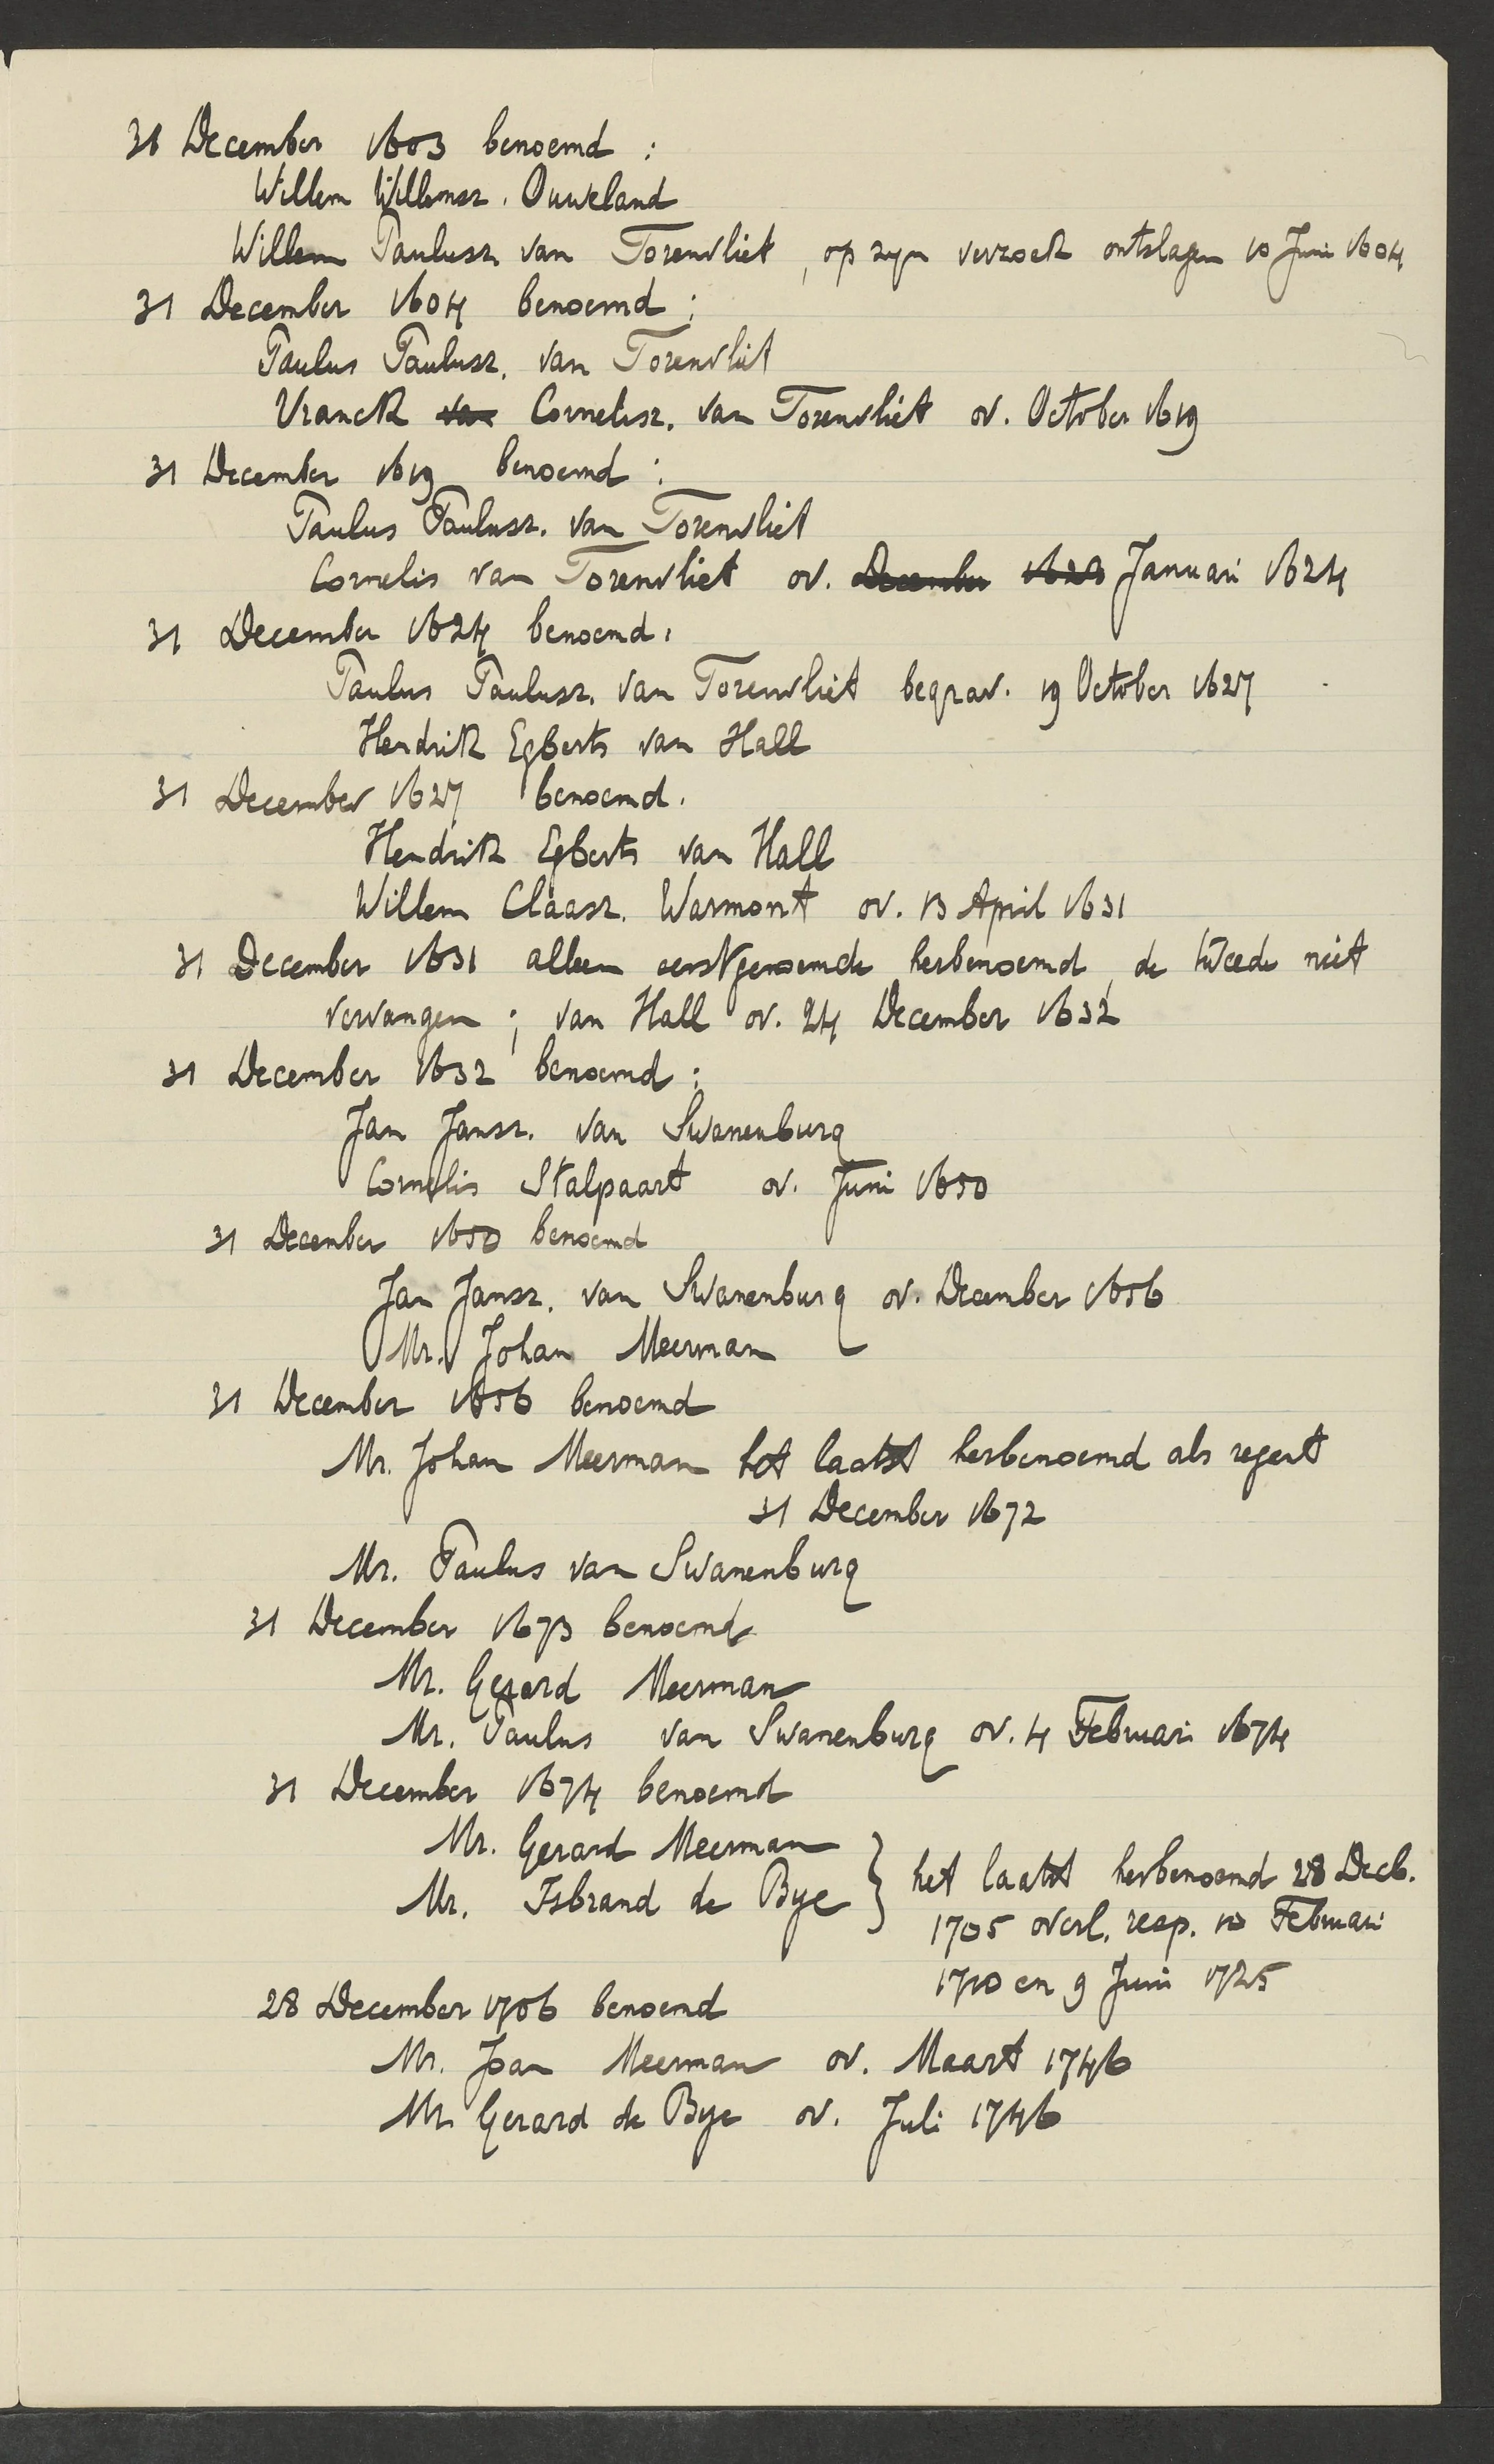 31 December 1603 benoemd :
Willem Willemsz. Ouweland
Willem Paulusz. van Torenvliet, op zyn verzoek ontslagen 10 Juni 1604
31 December 1604 benoemd ;
Paulus Paulusz. van Torenvliet
Vranck van Cornelisz. van Torenvliet ov. October 1619
31 December 1619 benoemd :
Paulus Paulusz. van Torenvliet
Cornelis van Torenvliet ov. December 1623 Januari 1624
31 December 1624 benoemd.
Paulus Paulusz. van Torenvliet begrav. 19 October 1627
Hendrik Egberts van Hall
31 December 1627 benoemd.
Hendrik Egberts van Hall
Willem Claasz. Warmont ov. 13 April 1631
31 December 1631 alleen eerstgenoemde herbenoemd, de tweede niet
vervangen ; van Hall ov. 24 December 1632
31 December 1632 benoemd :
Jan Jansz. van Swanenburg
Cornelis Stalpaart ov. Juni 1650
31 December 1650 benoemd
Jan Jansz. van Swanenburg ov. December 1656
Mr. Johan Meerman
31 December 1656 benoemd
Mr. Johan Meerman het laatst herbenoemd als regent
31 December 1672
Mr. Paulus van Swanenburg
31 December 1673 benoemd
Mr. Gerard Meerman
Mr. Paulus van Swanenburg ov. 4 Februari 1674
31 December 1674 benoemd
Mr. Gerard Meerman
Mr. Isbrand de Bye } het laatst herbenoemd 28 Decb.
1705 overl. resp. 10 Februari
1710 en 9 Juni 1725
28 December 1706 benoemd
Mr. Joan Meerman ov. Maart 1746
Mr. Gerard de Bye ov. Juli 1746